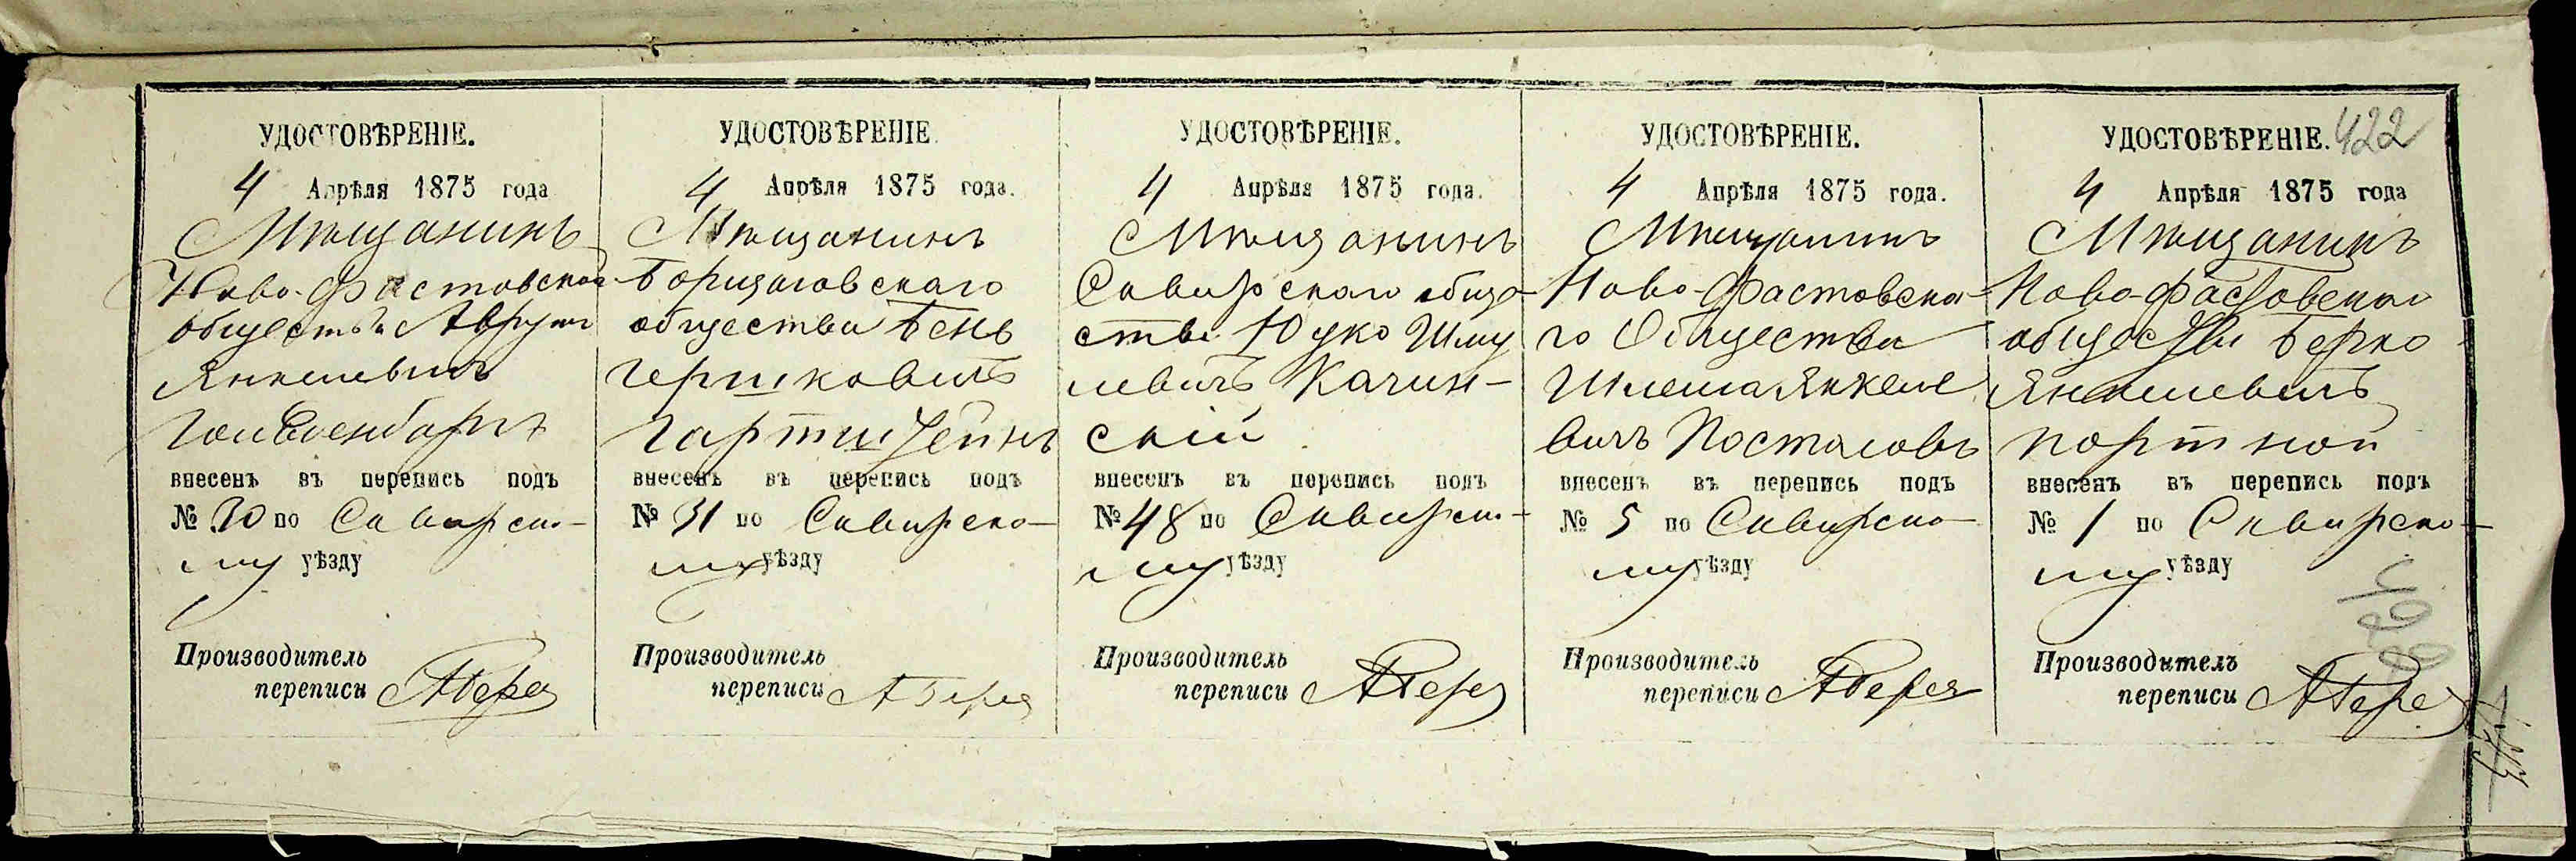 УДОСТОВѢРЕНІЕ.
4 Апрѣля 1875 года
Мѣщанинъ
Ново-Фастовскаго
общества Аврумъ
Янкелевичъ
внесенъ въ перепись подъ
№ 30 по Сквирско-
му уѣзду
Производитель
переписи
УДОСТОВѢРЕНІЕ
4 Апрѣля 1875 года.
Мѣщанинъ
Борщаговскаго
общества Бень
Гершковичъ
Гартштейнъ
внесенъ въ перепись подъ
№ 31 по Сквирско-
му уѣзду
Производитель
переписи
УДОСТОВѢРЕНІЕ.
4 Апрѣля 1875 года.
Мѣщанинъ
Сквирскаго обще-
ства Юдко Шму
левичъ Качин-
скій
внесенъ въ перепись подъ
№ 48 по Сквирско-
му уѣзду
Производитель
переписи
УДОСТОВѢРЕНІЕ.
4 Апрѣля 1875 года.
Мѣщанинъ
Ново-Фастовска-
го Общества
Шлема Янкеле
вичъ Постоловъ
внесенъ въ перепись подъ
№ 5 по Сквирско-
му уѣзду
Производитель
переписи
УДОСТОВѢРЕНІЕ. 422
4 Апрѣля 1875 года
Мѣщанинъ
Ново-Фастовскаго
общества Берко
Янкелевичъ
Портной
внесенъ въ перепись подъ
№ 1 по Сквирско-
му уѣзду
Производитель
переписи